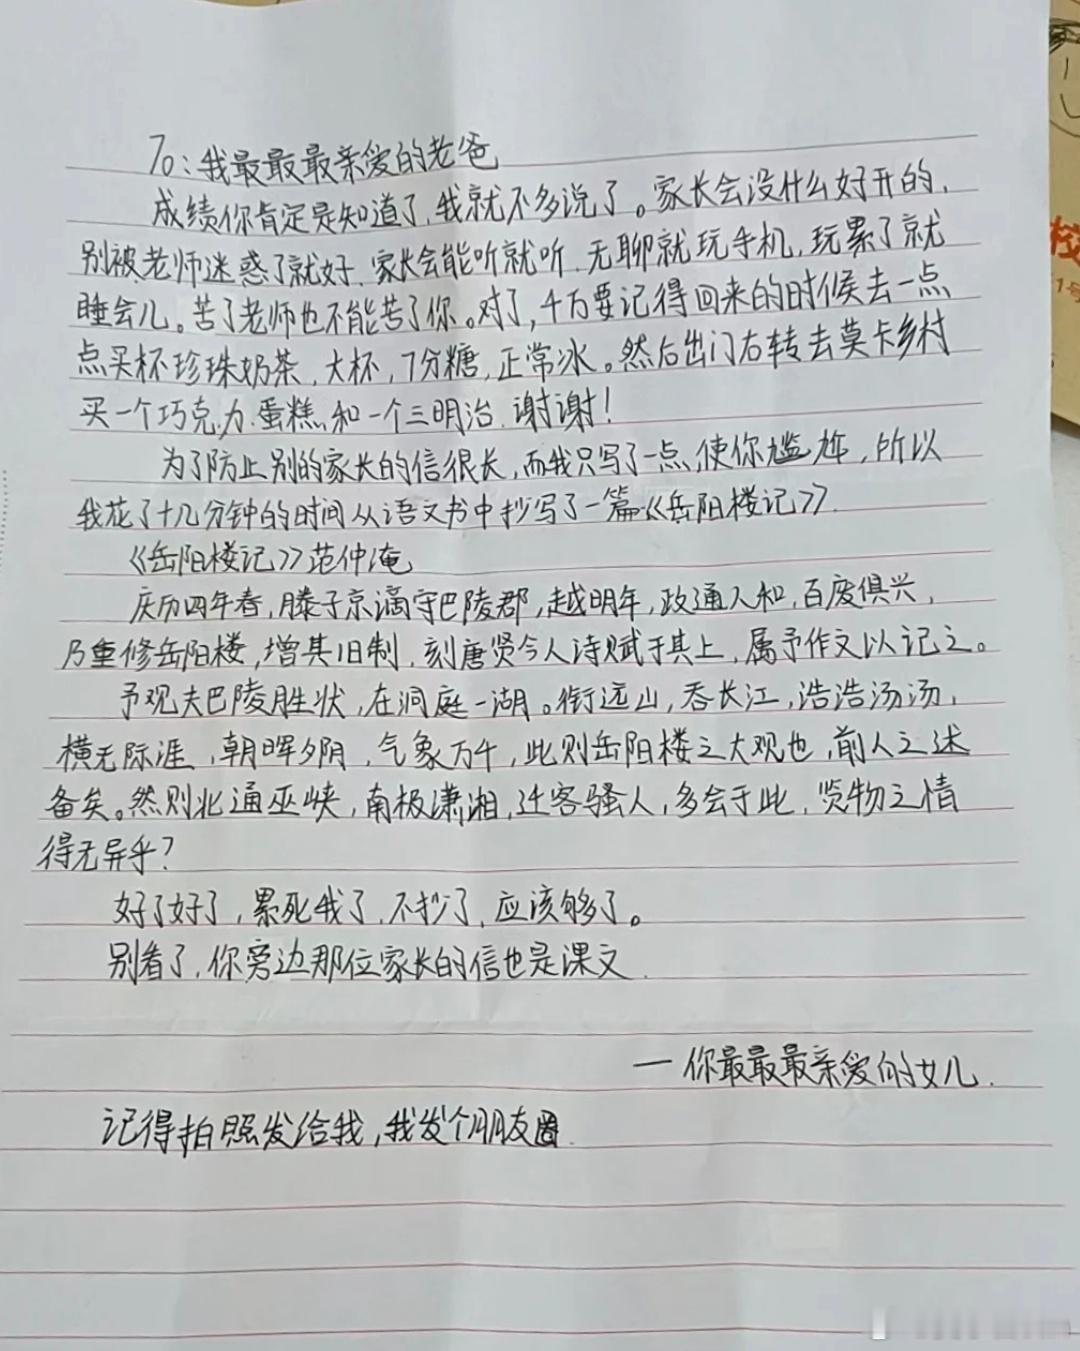 To：我最最最亲爱的老爸
成绩你肯定是知道了，我就不多说了。家长会没什么好开的，
别被老师迷惑了就好，家长会能听就听，无聊就玩手机，玩累了就
睡会儿。苦了老师也不能苦了你。对了，千万要记得回来的时候去一点
点买杯珍珠奶茶，大杯，7分糖，正常冰。然后出门右转去莫卡乡村
买一个巧克力蛋糕，和一个三明治，谢谢！
为了防止别的家长的信很长，而我只写了一点，使你尴尬，所以
我花了十几分钟的时间从语文书中抄写了一篇《岳阳楼记》.
《岳阳楼记》范仲淹
庆历四年春，滕子京谪守巴陵郡，越明年，政通人和，百废俱兴，
乃重修岳阳楼，增其旧制，刻唐贤今人诗赋于其上，属予作文以记之。
予观夫巴陵胜状，在洞庭一湖。衔远山，吞长江，浩浩汤汤，
横无际涯，朝晖夕阴，气象万千，此则岳阳楼之大观也，前人之述
备矣。然则北通巫峡，南极潇湘，迁客骚人，多会于此，览物之情
得无异乎？
好了好了，累死我了，不抄了，应该够了。
别看了，你旁边那位家长的信也是课文.
一你最最最亲爱的女儿.
记得拍照发给我，我发个朋友圈.
校
1号